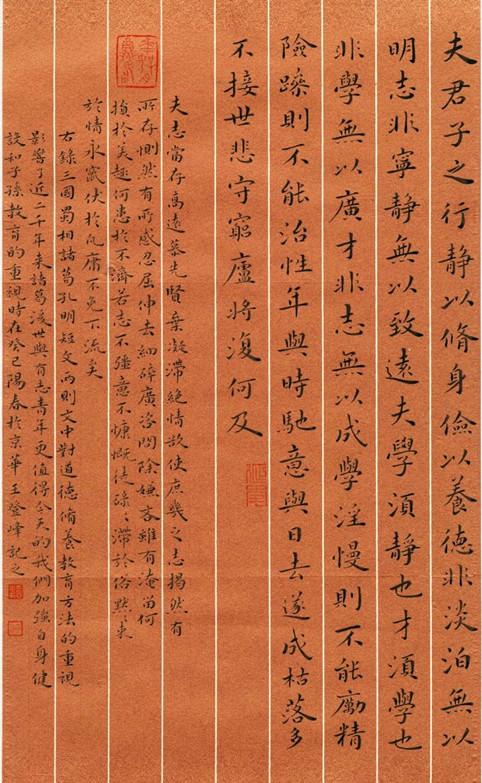 夫君子之行静以脩身儉以養德非淡泊無以
明志非寧静無以致遠夫學須静也才須學也
非學無以廣才非志無以成學淫慢則不能勵精
險躁則不能治性年與時馳意與日去遂成枯落多
不接世悲守窮廬將復何及
夫志當存高遠慕先賢棄凝滯絶情欲使庶幾之志揭然有
所存惻然有所感忍屈伸去細碎廣咨問除嫌吝雖有淹留何
損於美趣何患於不濟若志不彊意不慷慨徒碌〻滯於俗默〻束
於情永竄伏於凡庸不免下流矣
右録三國蜀相諸葛孔明短文兩則文中對道德脩養教育方法的重視
影響了近二千年来諸葛後世與有志青年更值得今天的我們加強自身健
設和子孫教育的重視時在癸巳陽春於京華王登峰記之